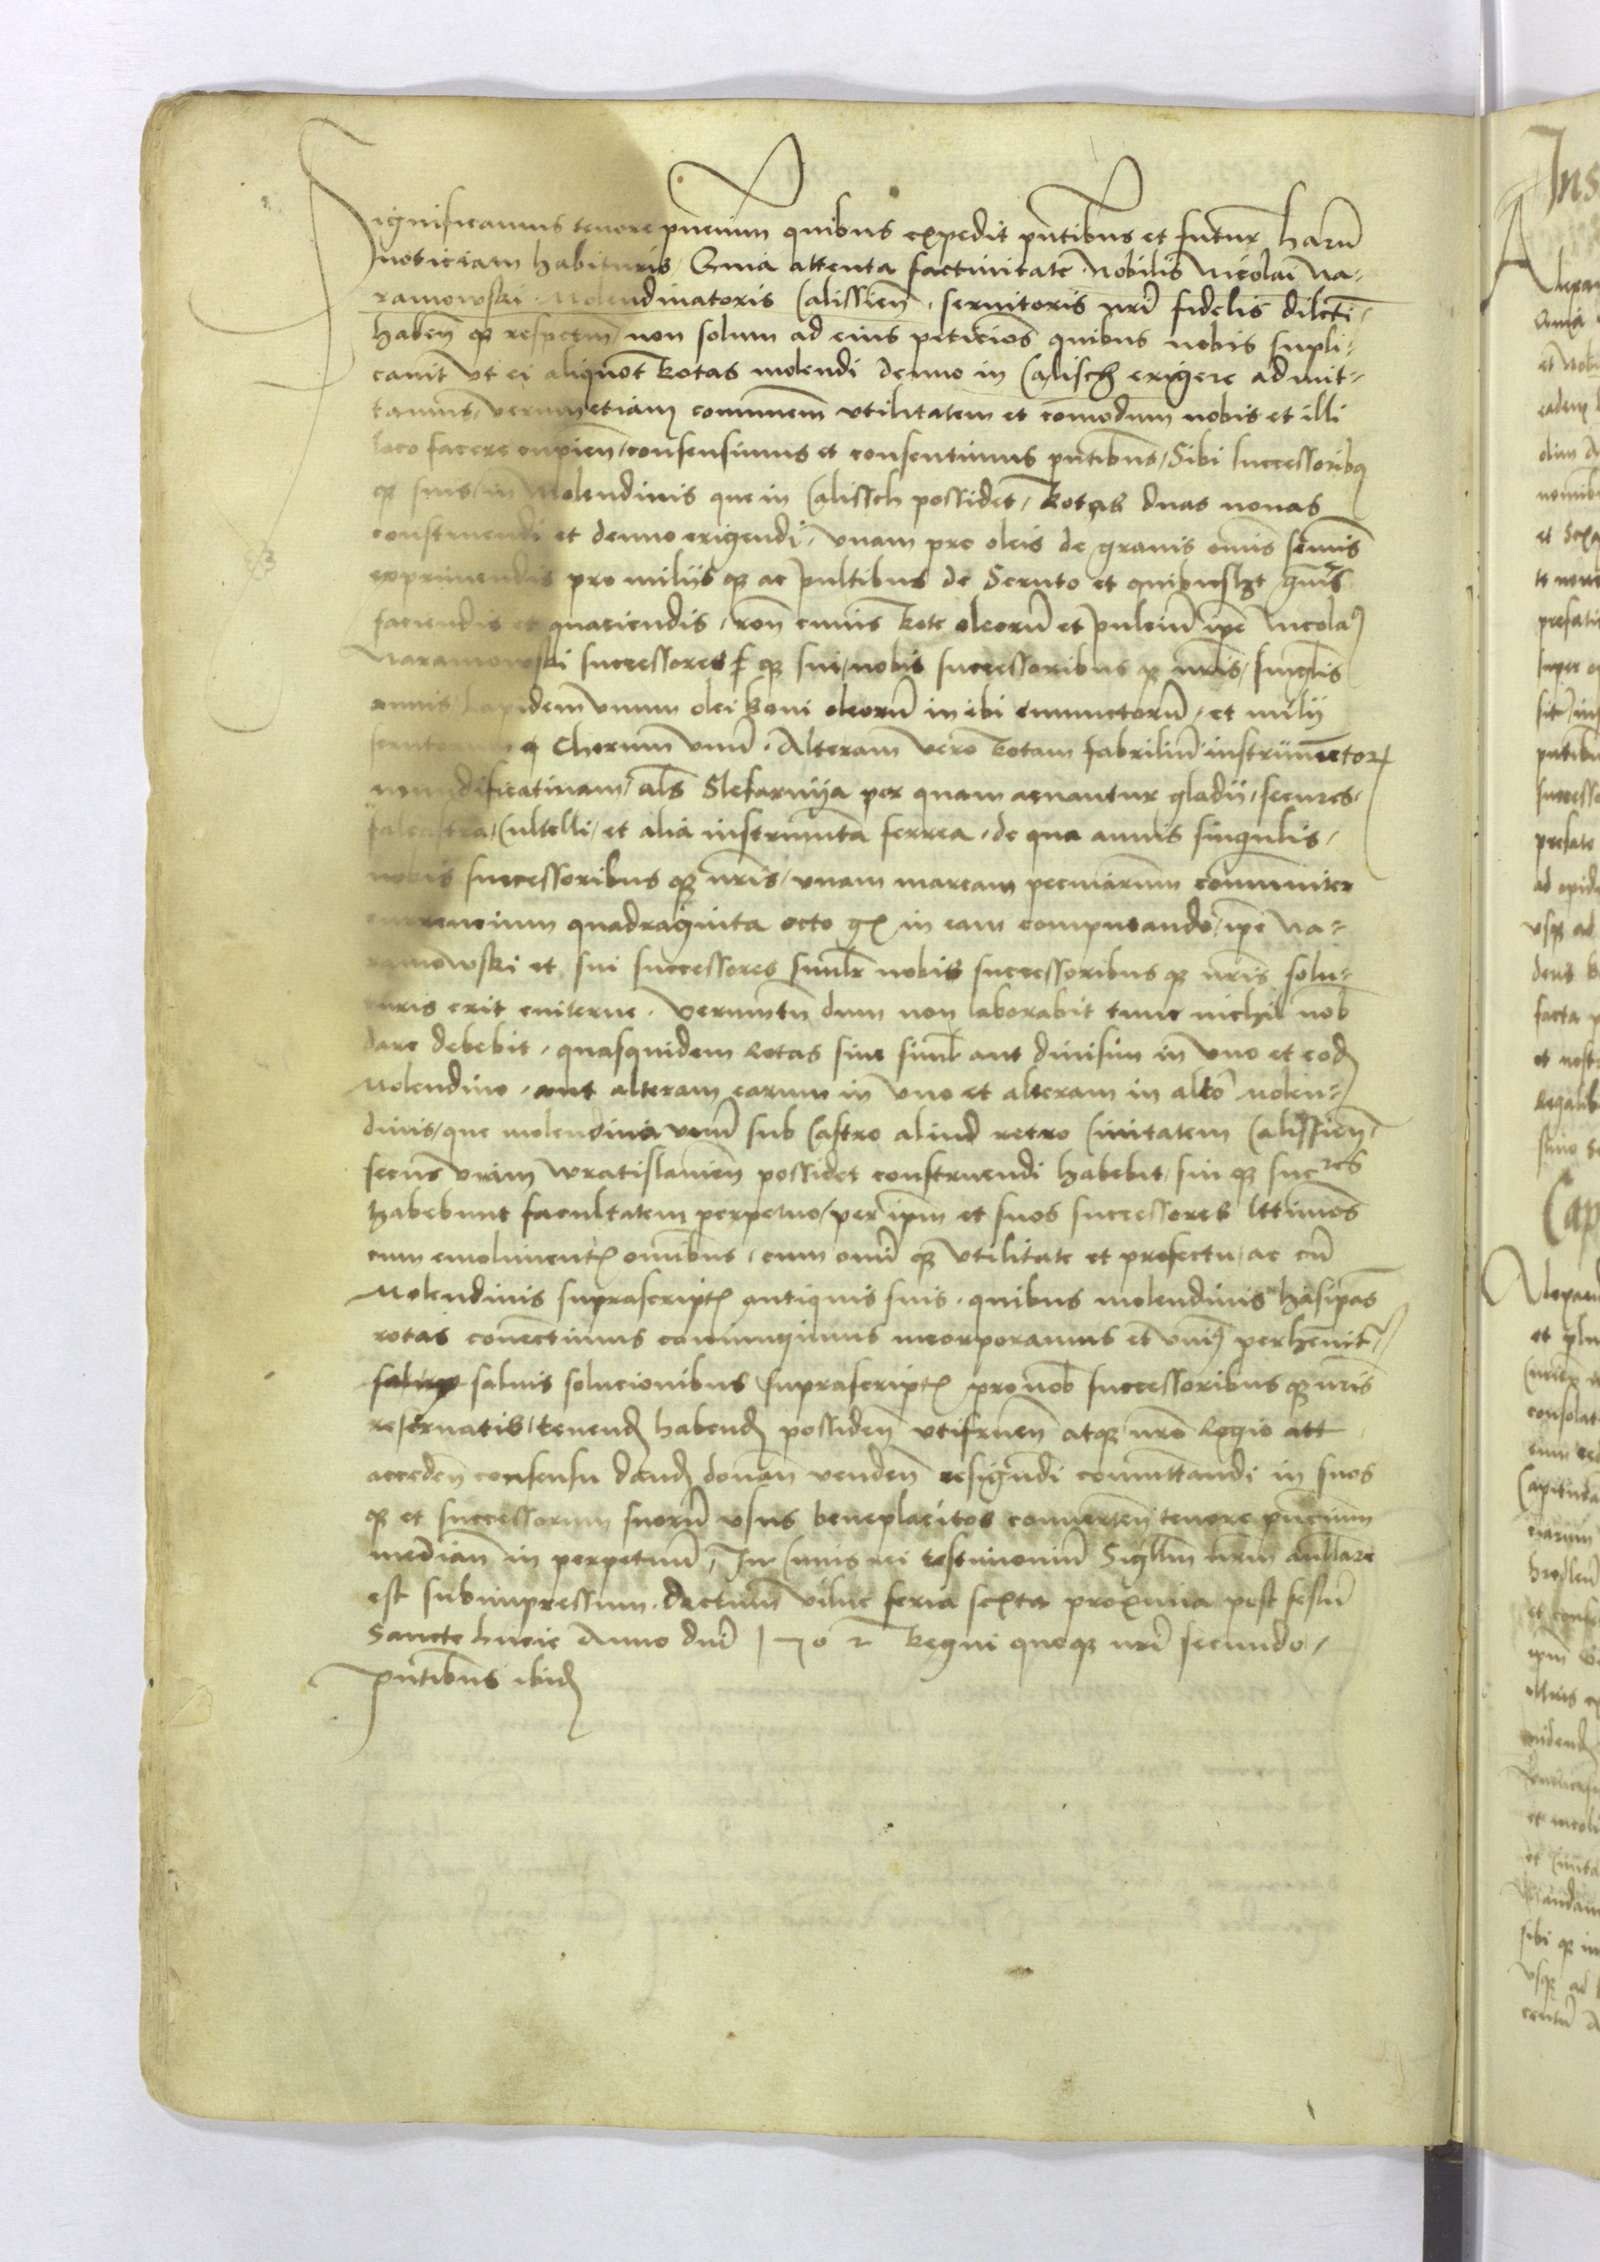 Significamus tenore pñcium quibus expedit pñtibus et futur harũ
noticiam habituris Quia attenta factivitate Nobilis Nicolai Na-
ramowski Molendinatoris Calissien̄ servitoris nr̄i fidelis dilecti
haben̄ qȝ respectum non solum ad eius peticiōs quibus nobis supli-
cavit ut ei aliquot Rotas molendi denuo in Calisch erigere admit-
tamus, verumetiam communem utilitatem et com̄odum nobis et illi
loco facere cupien̄ consensimus et consentimus pñtibus Sibi successoribȝ
qȝ suis in Molendinis que in Calissch possidet, Rotas duas novas
construendi et denuo erigendi, unam pro oleis de granis om̄is seminis
exprimendis pro miliis qȝ ac pultibus de Seruto et quibuslȝt
faciendis et quaciendis, rōn cuius Rote oleorũ et pulciũ ip̄e Nicolaȝ
Naramowski successores qȝ sui nobis successoribus qȝ nr̄is singlis
annis Lapidem unum olei boni oleorũ inibi emunctorũ et milii
Chorum unũ. Alteram vero Rotam fabriliũ instrumentor
mundificativam al̄s Slefarnya per quam acuantur gladii, secures,
falcastra, Cultelli, et alia instrumēta ferrea, de qua annis singulis,
nobis successoribus qȝ nr̄is, unam marcam pecuniarum communiter
currencium quadraginta octo gr̄ in eam computando, ip̄e Na-
ramowski et sui successores simlr nobis successoribus qȝ nr̄is solu-
turis erit eviterne. Verumtn̄ dum non laborabit tunc nichil nob
dare debebit, quasquidem Rotas sive siml̄ aut divisim in uno et eod
Molendino, aut alteram earum in uno et alteram in alt̄o Molen-
dinis, que molendina unũ sub Castro aliud retro Civitatem Calissien̄
secus viam Wratislavien̄ possidet construendi habebit, sui qȝ sucr̄es
habebunt facultatem perpetuo, per ip̄m et suos successores lttimos
cum emolument omnibus, cum omni qȝ utilitate et profectu, ac cũ
Molendinis suprascript antiquis suis, quibus molendinis
rotas coñectimus coniungimus incorporamus et unim perhennit
salvis solucionibus suprascript pro nob successoribus qȝ nr̄is
reservatis, tenend habend possiden̄ utifruen̄ atqȝ nr̄o Regio att
acceden̄ consensu dand donan̄ venden̄ resignandi commuttandi in suos
qȝ et successorum suorũ usus beneplacitos converten̄ tenore pñcium
median̄ in perpetuũ, In Cuius rei testimoniũ Sigillum nr̄m
est subimpressum. Dactum Vilne feria sexta proxima post festũ
Sancte Lucie Anno dñi 1702 Regni quoqȝ nr̄i secundo,
pñtibus ibid